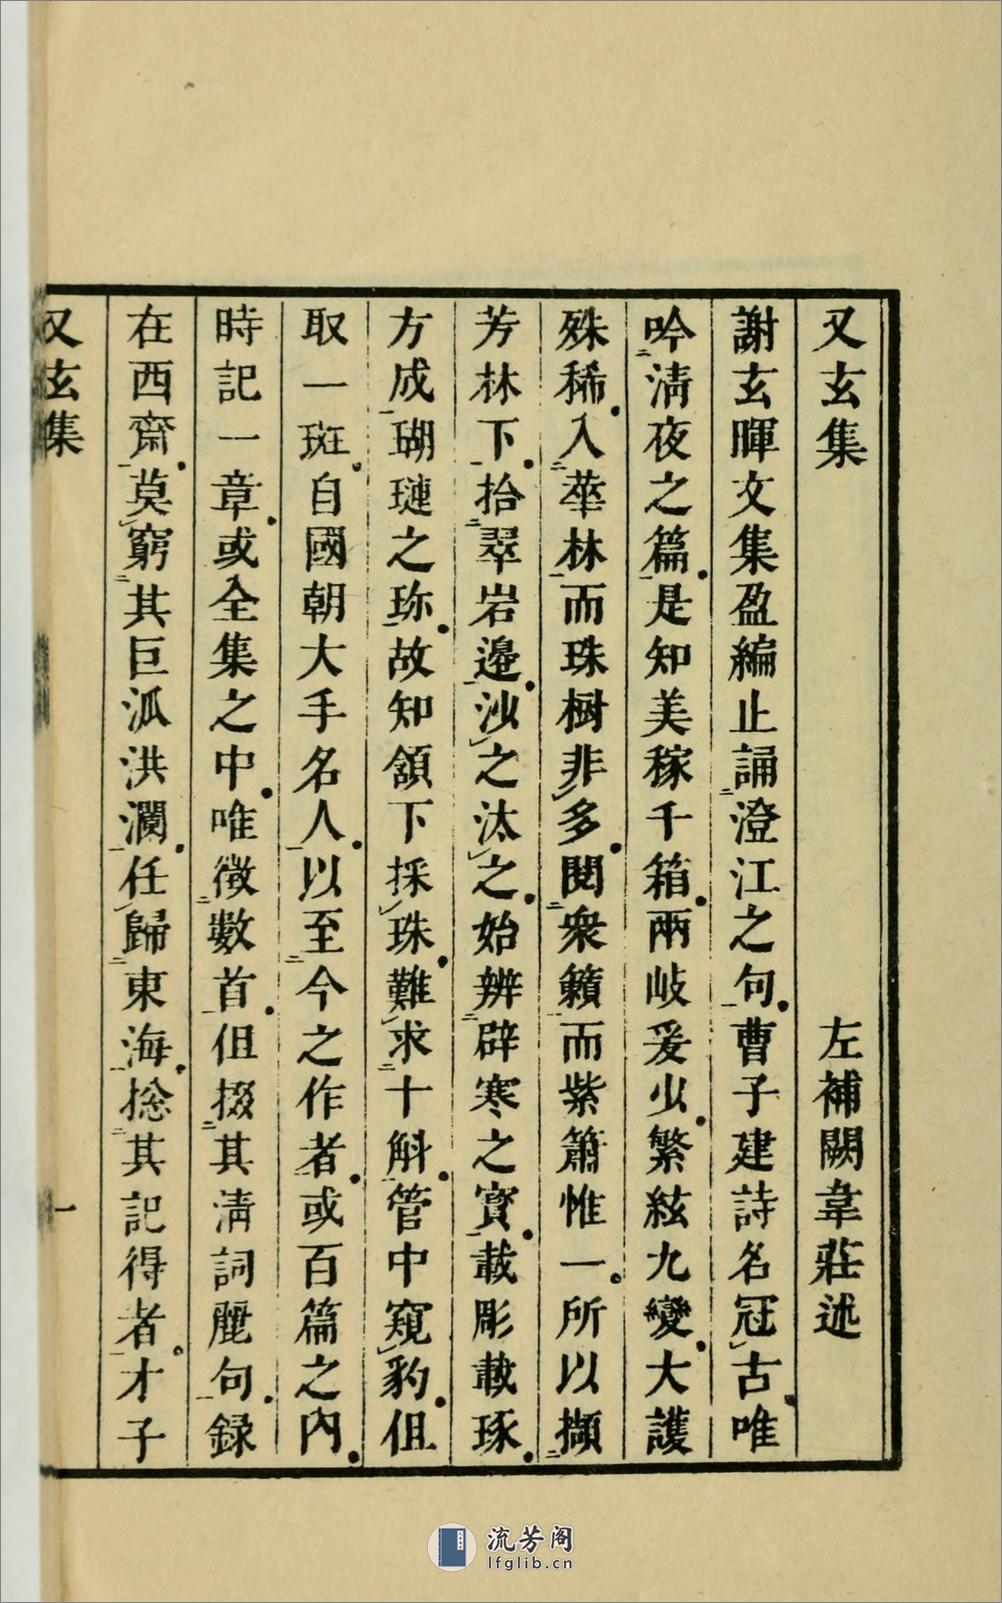 又玄集　左補闕韋莊述
謝玄暉文集盈編止誦澄江之句曹子建詩名冠古唯
吟清夜之篇是知美稼千箱兩岐爰少繁絃九變大護
殊稀入華林而珠樹非多閱衆籟而紫簫惟一所以擷
芳林下拾翠岩邉沙之汰之始辨辟寒之寳載彫載琢
方成瑚璉之珎故知頷下採珠難求十斛管中窺豹但
取一斑自國朝大手名人以至今之作者或百篇之內
時記一章或全集之中唯徵數首但掇其清詞麗句録
在西齋莫窮其巨泒洪瀾任歸東海捴其記得者才子
又玄集　一
流芳阁
lfglib.cn